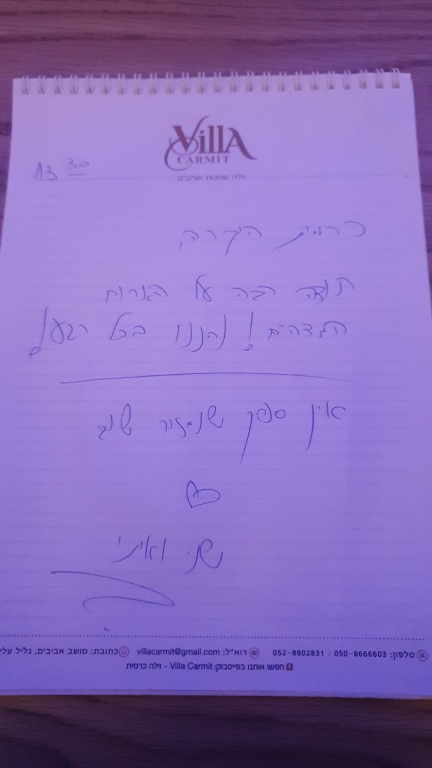 Villa
CARMIT
וילה שחונות אוהבים
13 30
כרמית היקרה
תודה רבה על הארוח
המדהים! נהננו בכל רגע!
אין ספק שנחזור שוב
שני ואיתי
טלפון: 050-6666603 / 052-8902831 דוא"ל: villacarmit@gmail.com כתובת: מושב אביבים, גליל עלי
חפשו אותנו בפייסבוק: Villa Carmit - וילה כרמית